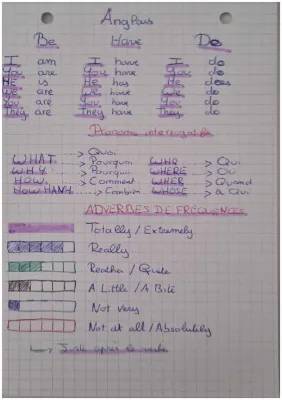 Anglais
Be Have Do
I am I have I do
You are You have You do
He is He has He does
We are We have We do
You are You have You do
They are They have They do
Pronoms interrogatifs
WHAT > Quoi
WHY > Pourquoi WHO > Qui
HOW > Comment WHERE > Où
HOW MANY > Combien WHEN > Quand
WHOSE > à Qui
ADVERBES DE FRÉQUENCES
Totally / Extremely
Really
Reather / Quite
A Little / A Bite
Not very
Not at all / Absolutely
Juste après le verbe